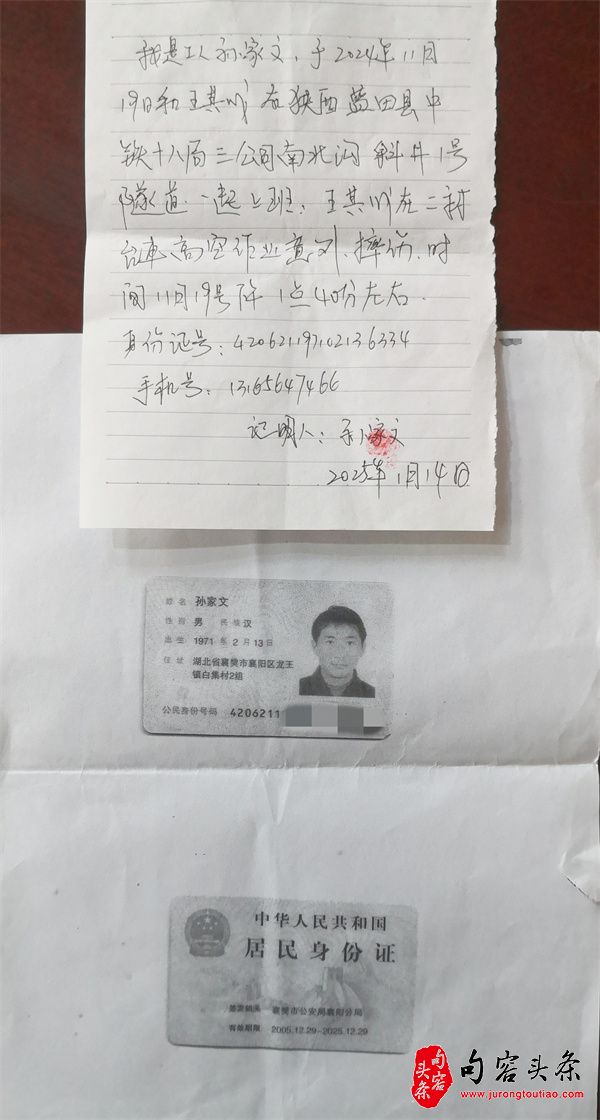 我是工人孙家文，于2024年11月
19日和王其川在狭西蓝田县中
铁十八局三公司南北沟斜井1号
隧道一起上班，王其川在二衬
台車高空作业意外，摔伤，时
间11月19号阵1点40份左右.
身份证号：420621197102136334
手机号：13165647466
证明人：孙家文
2025年1月14日
姓名 孙家文
性别 男 民族 汉
出生 1971 年 2 月 13 日
住址 湖北省襄樊市襄阳区龙王
镇白集村2组
公民身份号码 4206211
中华人民共和国
居民身份证
签发机关 襄樊市公安局襄阳分局
有效期限 2005.12.29-2025.12.29
句容头条
句容头条
www.jurongtoutiao.com